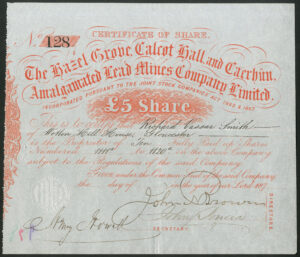 CERTIFICATE OF SHARE.
No. 128
The Hazel Grove, Calcot Hall and Caerhun,
Amalgamated Lead Mines Company Limited.
INCORPORATED PURSUANT TO THE JOINT STOCK COMPANIES ACT 1862 & 1867
£5 Share
This is to certify Richard Vassar Smith
of Wotton Hill House, Gloucester
is the Proprietor of Ten Fully Paid up Shares
Numbered to in the above Company
subject to the Regulations of the said Company
Given under the Common Seal of the said Company
the day of in the year of our Lord 187
John Brown
DIRECTORS
SECRETARY